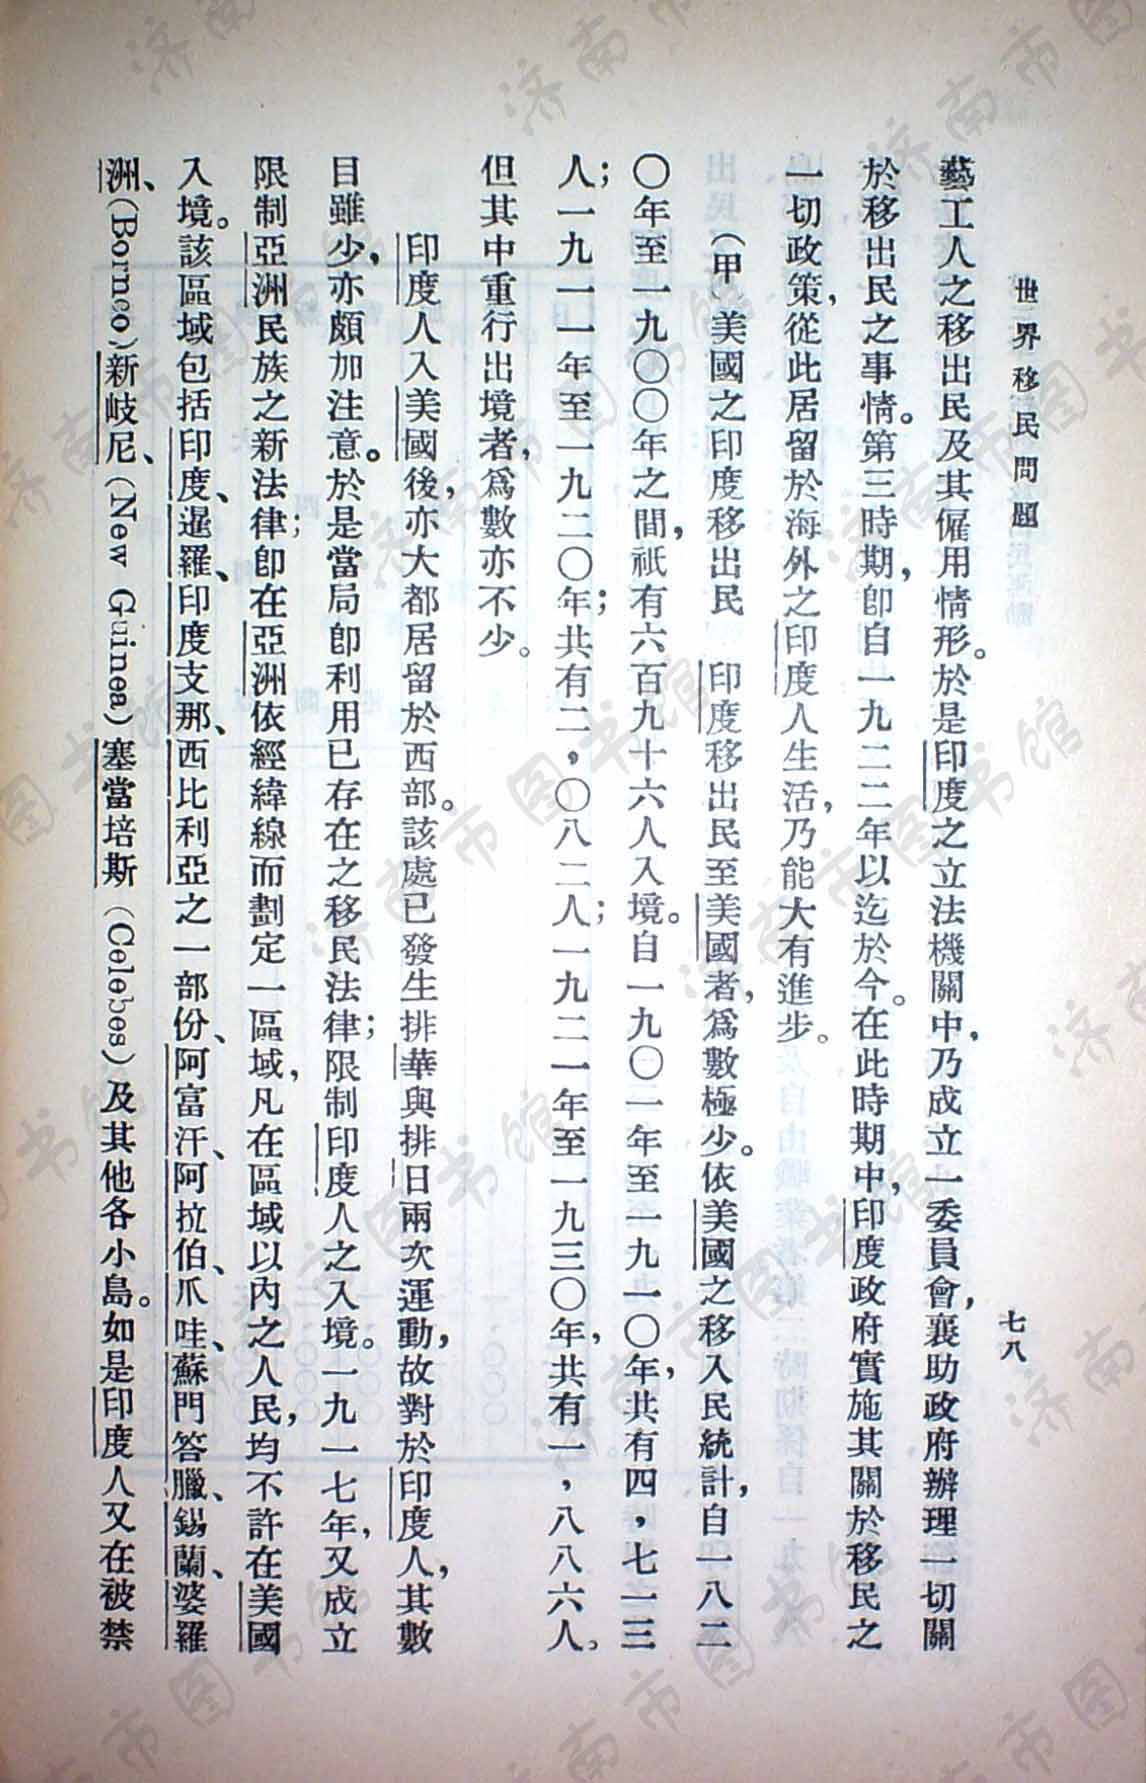 世界移民問題
七八
藝工人之移出民及其僱用情形。於是印度之立法機關中，乃成立一委員會，襄助政府辦理一切關
於移出民之事情。第三時期，卽自一九二二年以迄於今。在此時期中，印度政府實施其關於移民之
一切政策，從此居留於海外之印度人生活，乃能大有進步。
（甲）美國之印度移出民　印度移出民至美國者，爲數極少。依美國之移入民統計，自一八二
〇年至一九〇〇年之間，祇有六百九十六人入境。自一九〇一年至一九一〇年，共有四，七一三
人；一九一一年至一九二〇年；共有二，〇八二人；一九二一年至一九三〇年，共有一，八八六人。
但其中重行出境者，爲數亦不少。
印度人入美國後，亦大都居留於西部。該處已發生排華與排日兩次運動，故對於印度人，其數
目雖少，亦頗加注意。於是當局卽利用已存在之移民法律；限制印度人之入境。一九一七年，又成立
限制亞洲民族之新法律；卽在亞洲依經緯線而劃定一區域，凡在區域以內之人民，均不許在美國
入境。該區域包括印度、暹羅、印度支那、西比利亞之一部份、阿富汗、阿拉伯、爪哇、蘇門答臘、錫蘭、婆羅
洲、(Borneo)新岐尼、(New Guinea)塞當培斯(Celebes)及其他各小島。如是印度人又在被禁
济南市图书馆